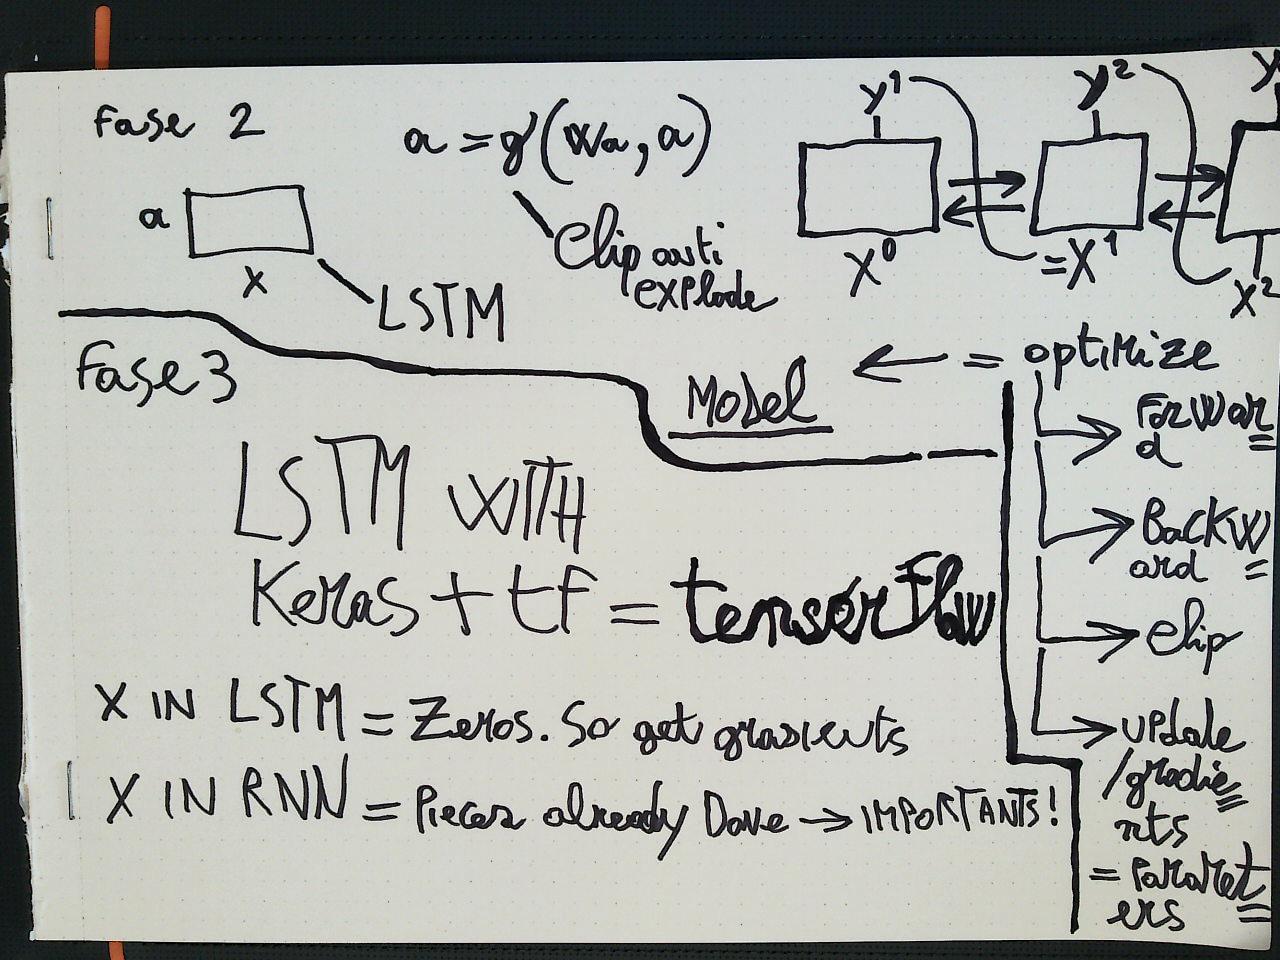 Fase 2
a = g'(Wa, a)
Clip anti
explode
a
X
LSTM
y¹
y²
y
X⁰
=X¹
X²
Fase 3
Model
← = optimize
→ Forwar
d
→ Backw
ard
→ Clip
→ update
/gradie
nts
= Paramet
ers
LSTM WITH
Keras + tf = tensorFlow
X IN LSTM = Zeros. So get gradients
X IN RNN = Pieces already Done → IMPORTANTS!